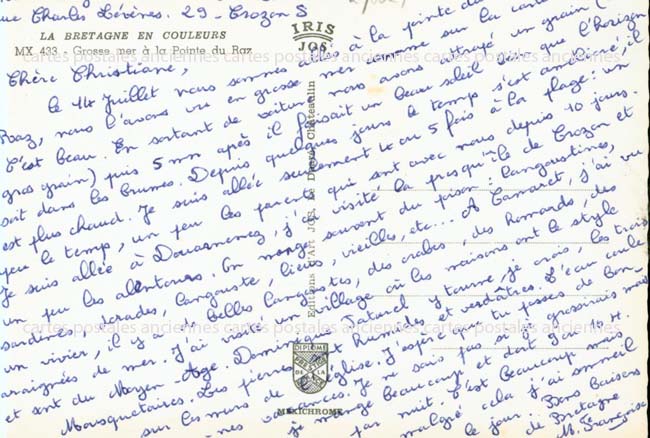 rue Charles Bérènes. 29 - Crozon S
LA BRETAGNE EN COULEURS
MX 433 - Grosse mer à la Pointe du Raz
IRIS
JOS
Editions d'Art JOS Le Doaré Châteaulin
DIPLOME
MEXICHROME
cartes postales anciennes
Chère Christiane,
le 14 Juillet nous sommes allés à la pointe du
Raz, nous l'avons vu en grosse mer comme sur la carte
C'est beau. En sortant de voiture nous avons attrapé un grain (
gros grain) puis 5 mn après il faisait un beau soleil bien que l'horizon
soit dans les brumes. Depuis quelques jours le temps s'est amélioré, il
est plus chaud. Je suis allée seulement 4 ou 5 fois à la plage: un
peu le temps, un peu les parents qui sont avec nous depuis 10 jours.
Je suis allée à Douarnenez, j'ai visité la presqu'île de Crozon et
un peu les alentours. On mange souvent du poisson: langoustines,
sardines, dorades, langouste, lieus, vieilles, etc... A Camaret, j'ai vu
un vivier, il y a de belles langoustes, des crabes, des homards, des
araignées de mer. J'ai visité un village où les maisons ont le style
et sont du Moyen-Age. Dominique Paturel y tourne, je crois, les trois
Mousquetaires. Les pierres sont humides et verdâtres. L'eau coule
sur les murs de l'église. J'espère que tu passes de bon-
nes vacances. Je ne sais pas si je grossirais mais
je mange beaucoup et dort 9 à 10 H.
par nuit. C'est beaucoup mais
malgré cela j'ai sommeil
le jour. Bons baisers
de Bretagne
M. Françoise